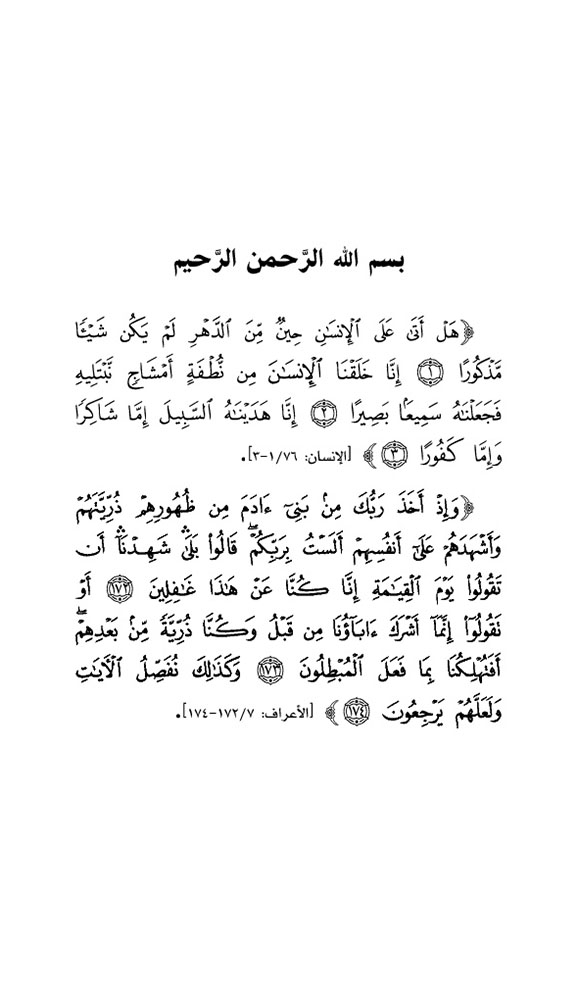 بسم الله الرَّحمن الرَّحيم
﴿هَلْ أَتَىٰ عَلَى ٱلْإِنسَٰنِ حِينٌ مِّنَ ٱلدَّهْرِ لَمْ يَكُن شَيْـًٔا
مَّذْكُورًا ١ إِنَّا خَلَقْنَا ٱلْإِنسَٰنَ مِن نُّطْفَةٍ أَمْشَاجٍ نَّبْتَلِيهِ
فَجَعَلْنَٰهُ سَمِيعًۢا بَصِيرًا ٢ إِنَّا هَدَيْنَٰهُ ٱلسَّبِيلَ إِمَّا شَاكِرًا
وَإِمَّا كَفُورًا ٣﴾ [الإنسان: ٧٦/١-٣].
﴿وَإِذْ أَخَذَ رَبُّكَ مِنۢ بَنِىٓ ءَادَمَ مِن ظُهُورِهِمْ ذُرِّيَّتَهُمْ
وَأَشْهَدَهُمْ عَلَىٰٓ أَنفُسِهِمْ أَلَسْتُ بِرَبِّكُمْ ۖ قَالُوا۟ بَلَىٰ ۛ شَهِدْنَآ ۛ أَن
تَقُولُوا۟ يَوْمَ ٱلْقِيَٰمَةِ إِنَّا كُنَّا عَنْ هَٰذَا غَٰفِلِينَ ١٧٢ أَوْ
تَقُولُوٓا۟ إِنَّمَآ أَشْرَكَ ءَابَآؤُنَا مِن قَبْلُ وَكُنَّا ذُرِّيَّةً مِّنۢ بَعْدِهِمْ ۖ
أَفَتُهْلِكُنَا بِمَا فَعَلَ ٱلْمُبْطِلُونَ ١٧٣ وَكَذَٰلِكَ نُفَصِّلُ ٱلْءَايَٰتِ
وَلَعَلَّهُمْ يَرْجِعُونَ ١٧٤﴾ [الأعراف: ٧/١٧٢-١٧٤].